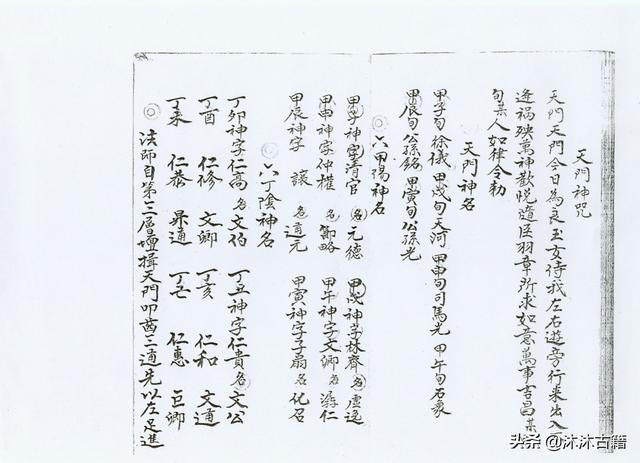 天門神咒
天門天門今日為良玉女侍我左右遊旁行來出入
逢禍殃萬神歡悅隨臣羽章所求如意萬事吉昌某
旬某人如律令勅
天門神名
甲子旬徐儀 甲戌旬天河 甲申旬司馬光 甲午旬石象
甲辰旬公孫銘 甲寅旬公孫光
◎六甲陽神名
甲子神字清官 名元德 甲戌神字林齊 名虛逸
甲申神字仲權 名節略 甲午神字文卿 名游仁
甲辰神字 讓 名通元 甲寅神字子扇 名化召
◎六丁陰神名
丁卯神字仁高 名文伯 丁丑神字仁貴 名文公
丁酉 仁修 文卿 丁亥 仁和 文通
丁未 仁恭 昇通 丁巳 仁惠 巨卿
◎法師自第三層壇揖天門叩齒三通先以左足進
头条 @沐沐古籍